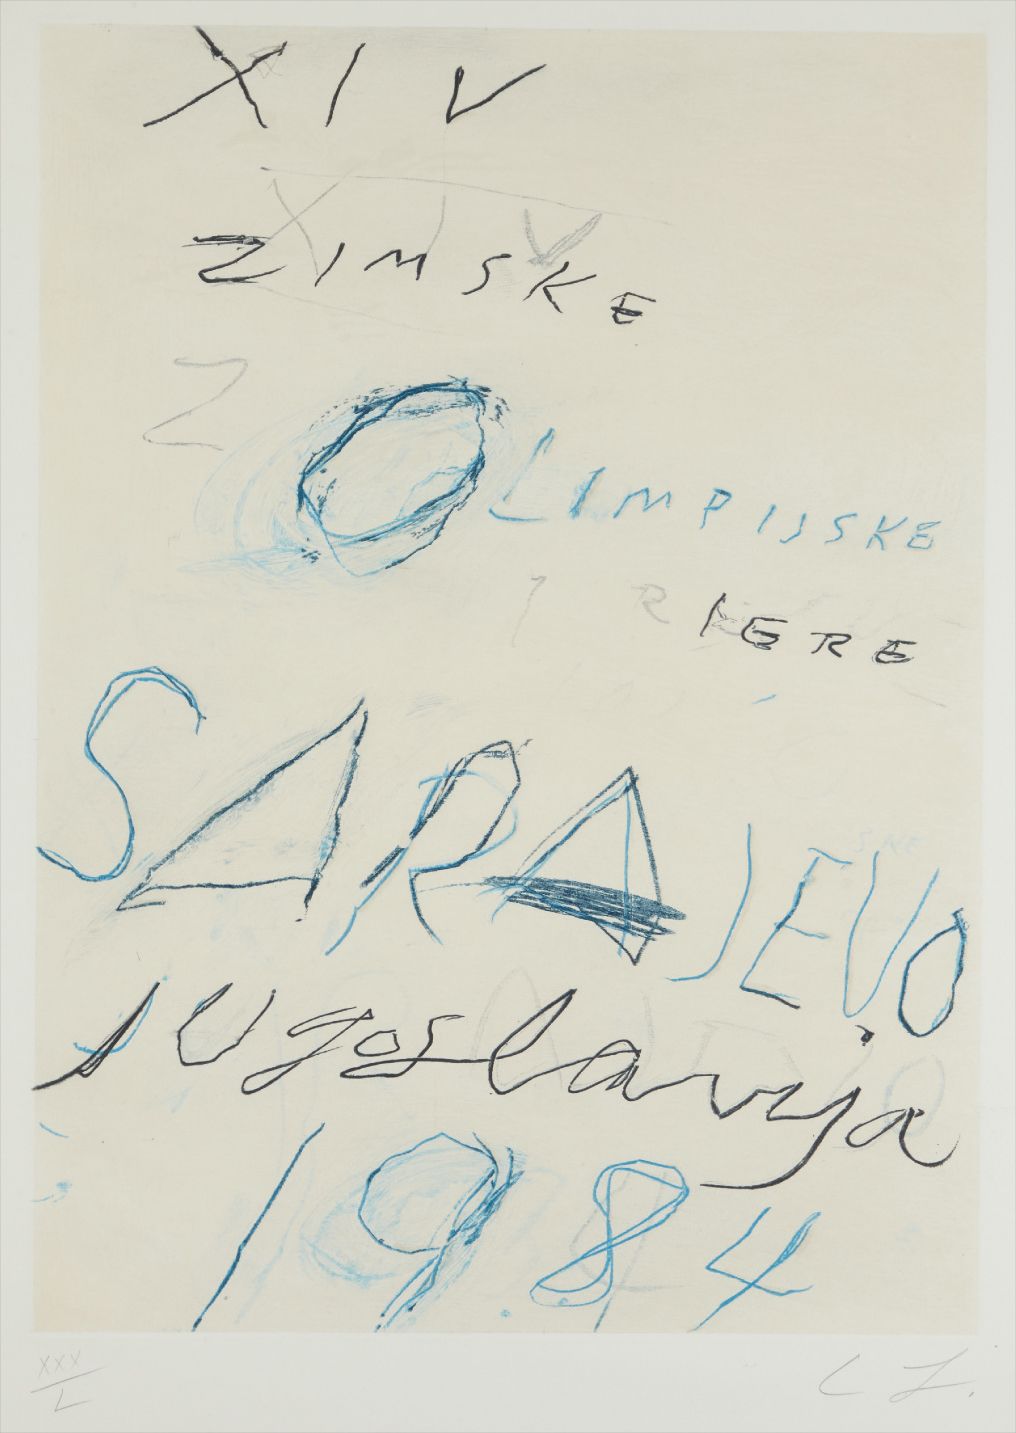 XIV
XIV
ZIMSKE
Z
OLIMPIJSKE
IERE
SARAJEVO
Jugoslavija
1984
XXX
L